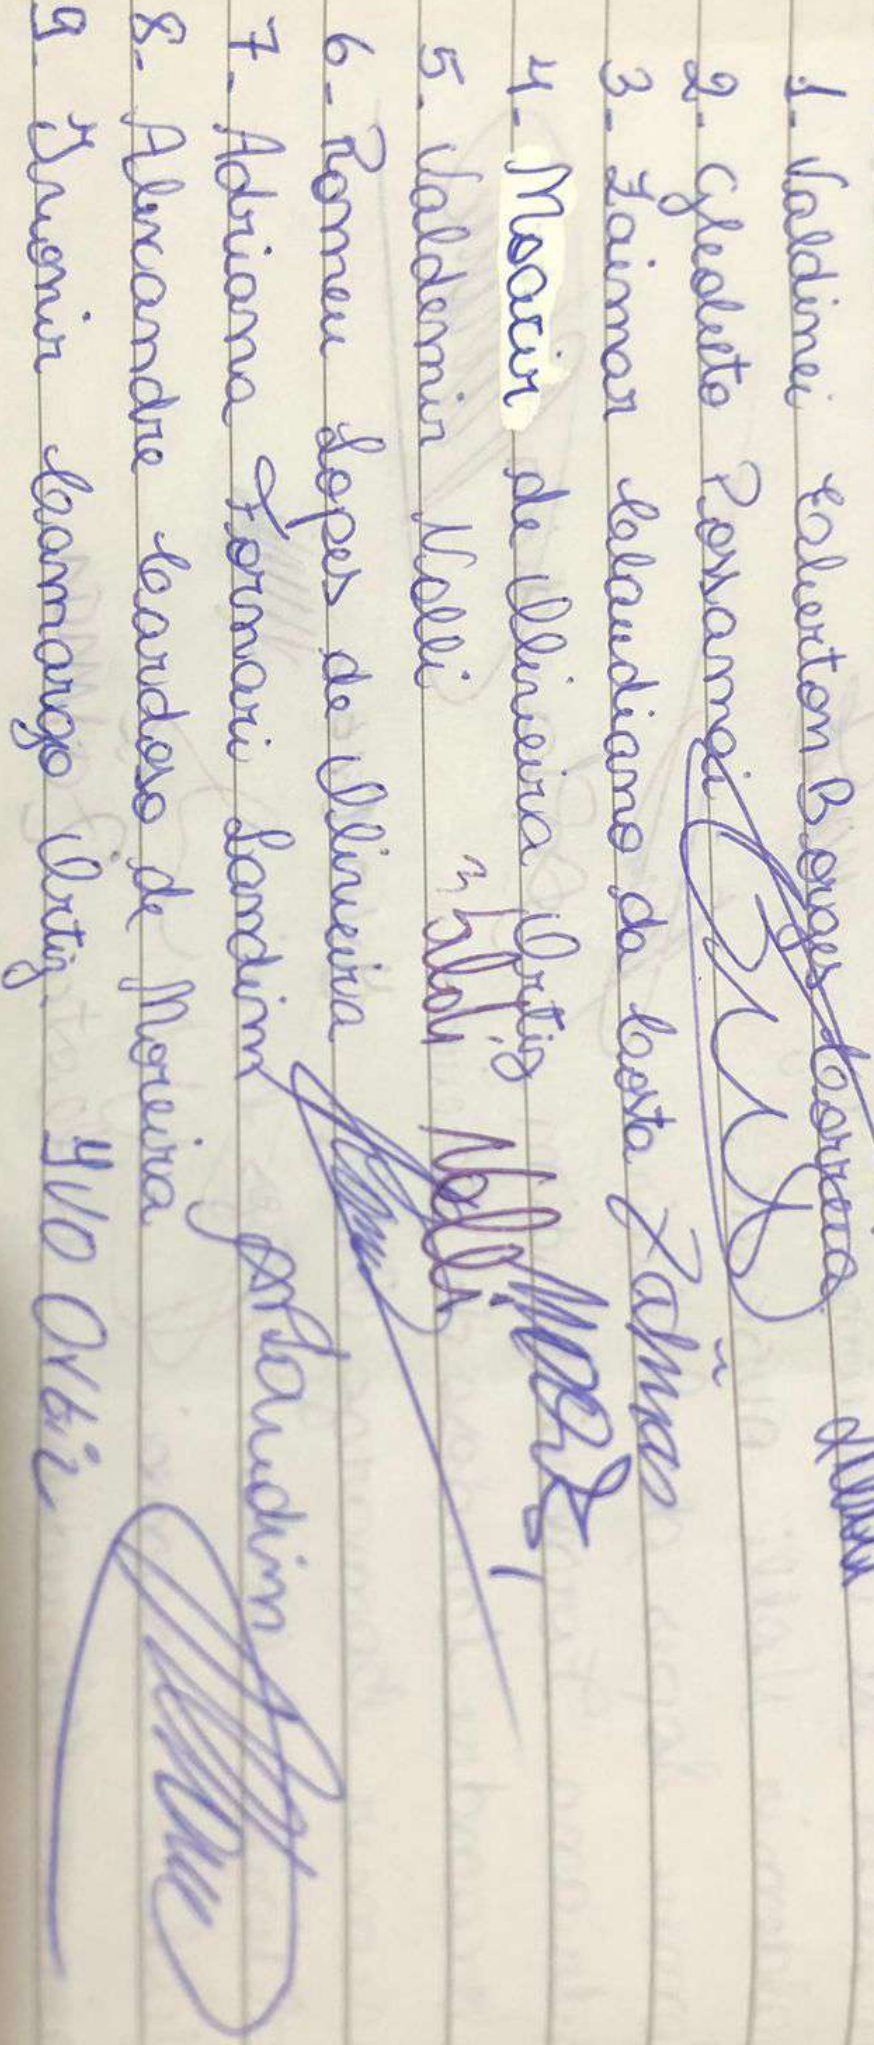 1- Valdinei Elverton Borges Correia
2- Gleoberto Possamai
3- Zaimar Claudiano da Costa Zaimar
4- Moacir de Oliveira Ortiz
5- Valdemir Nolli Valdi Nolli
6- Romeu Lopes de Oliveira
7- Adriana Fornari Landim Arlandim
8- Alexandre Cardoso de Moreira
9- Ivonir Camargo Ortiz. IVO Ortiz